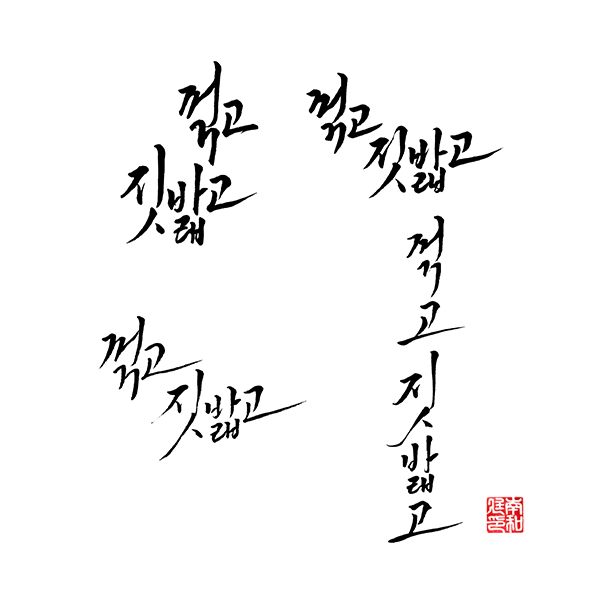 꺾고
짓밟고
꺾고
짓밟고
꺾고
짓밟고
꺾고
짓밟고